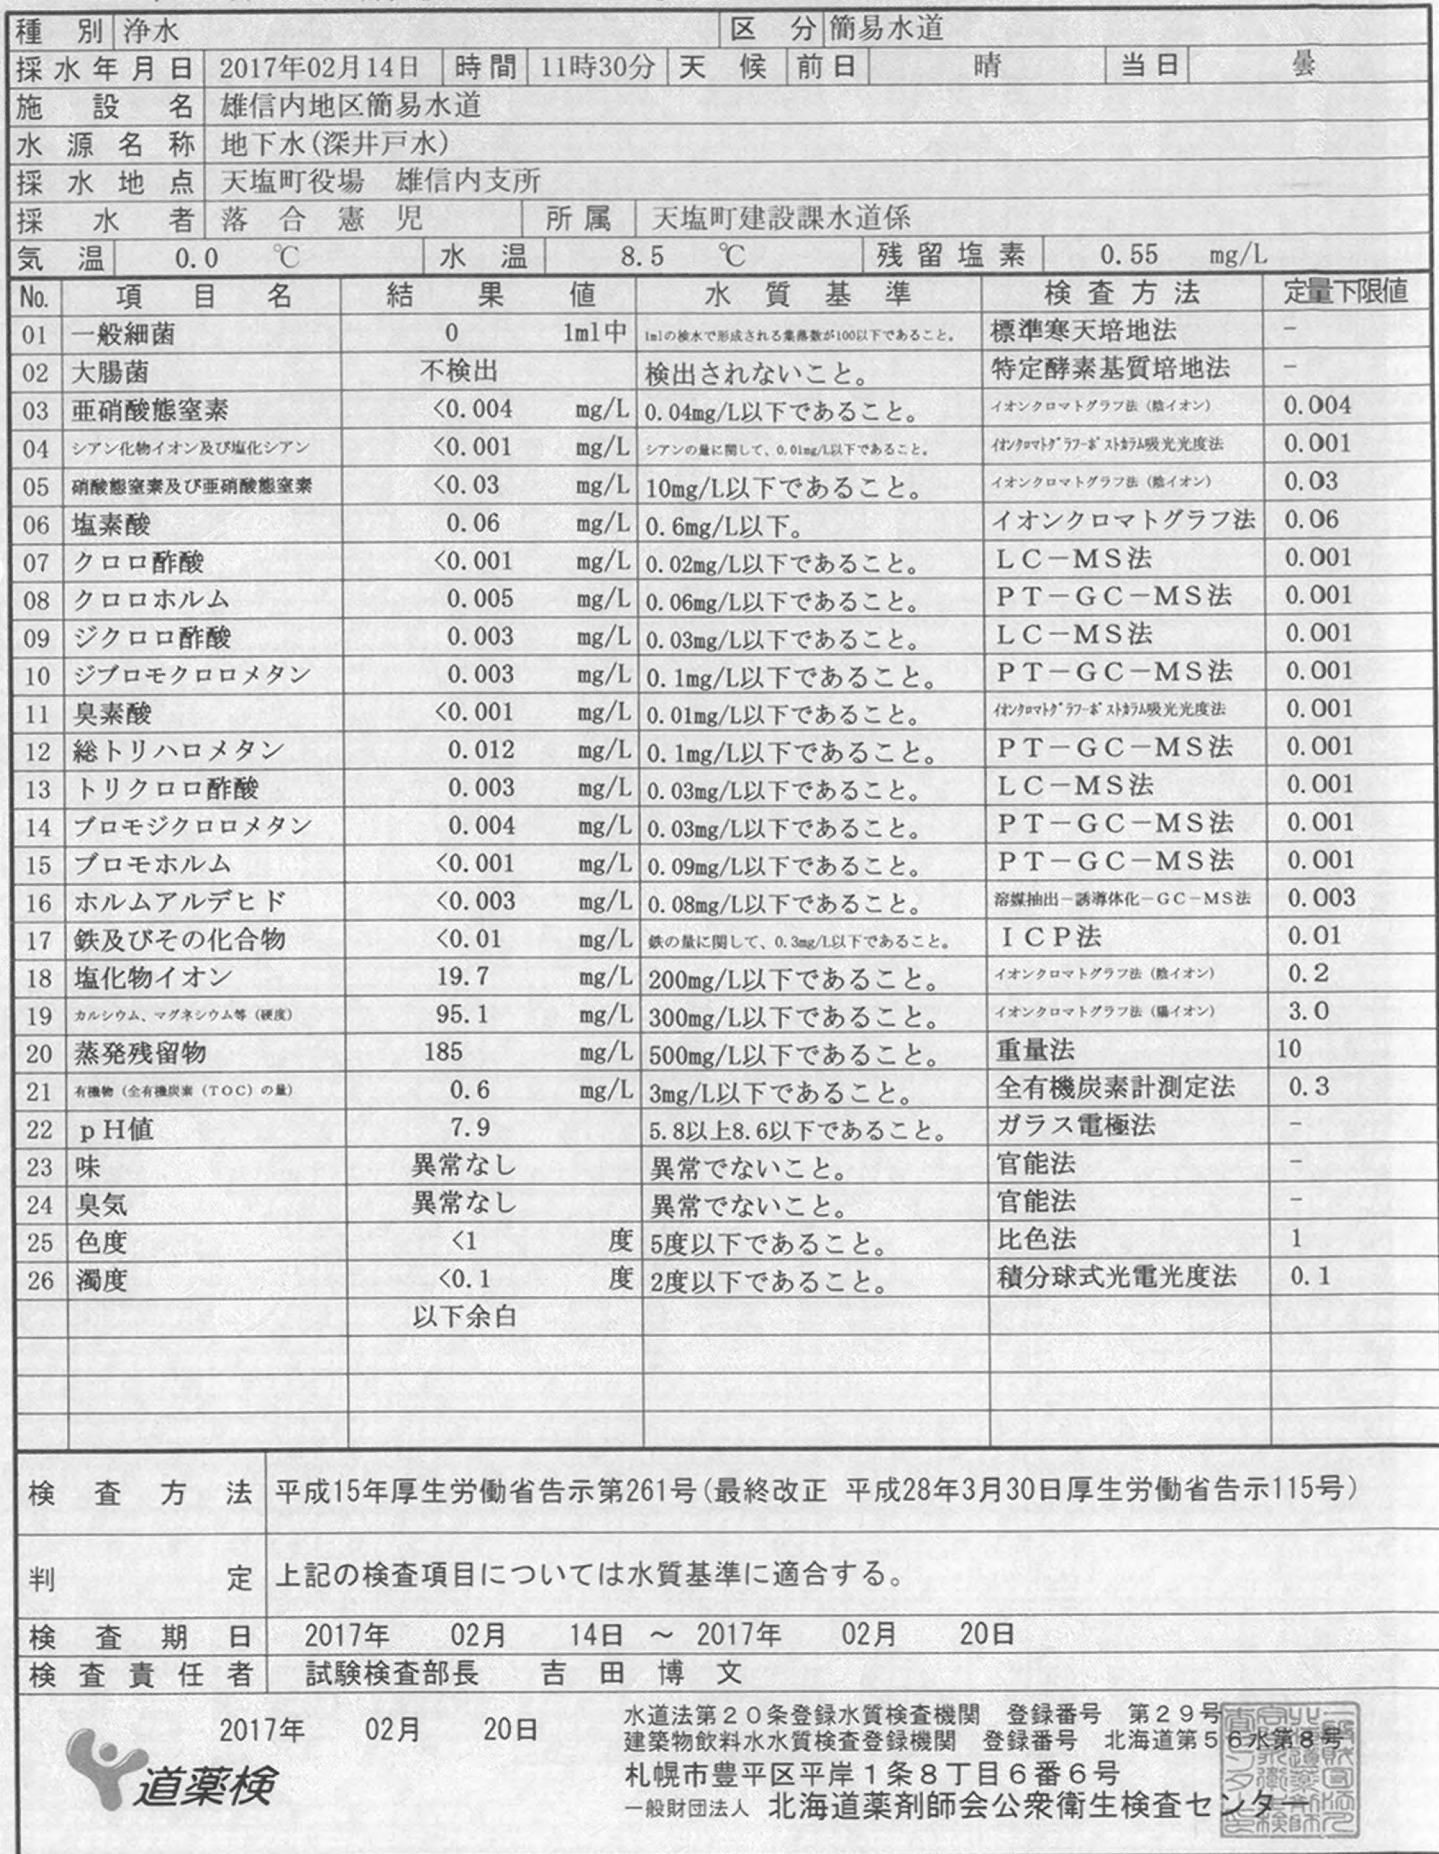 種別 浄水 区分 簡易水道
採水年月日 2017年02月14日 時間 11時30分 天候 前日 晴 当日 曇
施設名 雄信内地区簡易水道
水源名称 地下水(深井戸水)
採水地点 天塩町役場 雄信内支所
採水者 落合憲児 所属 天塩町建設課水道係
気温 0.0 ℃ 水温 8.5 ℃ 残留塩素 0.55 mg/L
No. 項目名 結果値 水質基準 検査方法 定量下限値
01 一般細菌 0 1ml中 1mlの検水で形成される集落数が100以下であること。 標準寒天培地法 -
02 大腸菌 不検出 検出されないこと。 特定酵素基質培地法 -
03 亜硝酸態窒素 <0.004 mg/L 0.04mg/L以下であること。 イオンクロマトグラフ法(陰イオン) 0.004
04 シアン化物イオン及び塩化シアン <0.001 mg/L シアンの量に関して、0.01mg/L以下であること。 イオンクロマトグラフ-ポストカラム吸光光度法 0.001
05 硝酸態窒素及び亜硝酸態窒素 <0.03 mg/L 10mg/L以下であること。 イオンクロマトグラフ法(陰イオン) 0.03
06 塩素酸 0.06 mg/L 0.6mg/L以下。 イオンクロマトグラフ法 0.06
07 クロロ酢酸 <0.001 mg/L 0.02mg/L以下であること。 LC-MS法 0.001
08 クロロホルム 0.005 mg/L 0.06mg/L以下であること。 PT-GC-MS法 0.001
09 ジクロロ酢酸 0.003 mg/L 0.03mg/L以下であること。 LC-MS法 0.001
10 ジブロモクロロメタン 0.003 mg/L 0.1mg/L以下であること。 PT-GC-MS法 0.001
11 臭素酸 <0.001 mg/L 0.01mg/L以下であること。 イオンクロマトグラフ-ポストカラム吸光光度法 0.001
12 総トリハロメタン 0.012 mg/L 0.1mg/L以下であること。 PT-GC-MS法 0.001
13 トリクロロ酢酸 0.003 mg/L 0.03mg/L以下であること。 LC-MS法 0.001
14 ブロモジクロロメタン 0.004 mg/L 0.03mg/L以下であること。 PT-GC-MS法 0.001
15 ブロモホルム <0.001 mg/L 0.09mg/L以下であること。 PT-GC-MS法 0.001
16 ホルムアルデヒド <0.003 mg/L 0.08mg/L以下であること。 溶媒抽出-誘導体化-GC-MS法 0.003
17 鉄及びその化合物 <0.01 mg/L 鉄の量に関して、0.3mg/L以下であること。 ICP法 0.01
18 塩化物イオン 19.7 mg/L 200mg/L以下であること。 イオンクロマトグラフ法(陰イオン) 0.2
19 カルシウム、マグネシウム等(硬度) 95.1 mg/L 300mg/L以下であること。 イオンクロマトグラフ法(陽イオン) 3.0
20 蒸発残留物 185 mg/L 500mg/L以下であること。 重量法 10
21 有機物(全有機炭素(TOC)の量) 0.6 mg/L 3mg/L以下であること。 全有機炭素計測定法 0.3
22 pH値 7.9 5.8以上8.6以下であること。 ガラス電極法 -
23 味 異常なし 異常でないこと。 官能法 -
24 臭気 異常なし 異常でないこと。 官能法 -
25 色度 <1 度 5度以下であること。 比色法 1
26 濁度 <0.1 度 2度以下であること。 積分球式光電光度法 0.1
以下余白
検査方法 平成15年厚生労働省告示第261号(最終改正 平成28年3月30日厚生労働省告示115号)
判定 上記の検査項目については水質基準に適合する。
検査期日 2017年 02月 14日 ～ 2017年 02月 20日
検査責任者 試験検査部長 吉田博文
2017年 02月 20日
道薬検
水道法第20条登録水質検査機関 登録番号 第29号
建築物飲料水水質検査登録機関 登録番号 北海道第56水第8号
札幌市豊平区平岸1条8丁目6番6号
一般財団法人 北海道薬剤師会公衆衛生検査センター